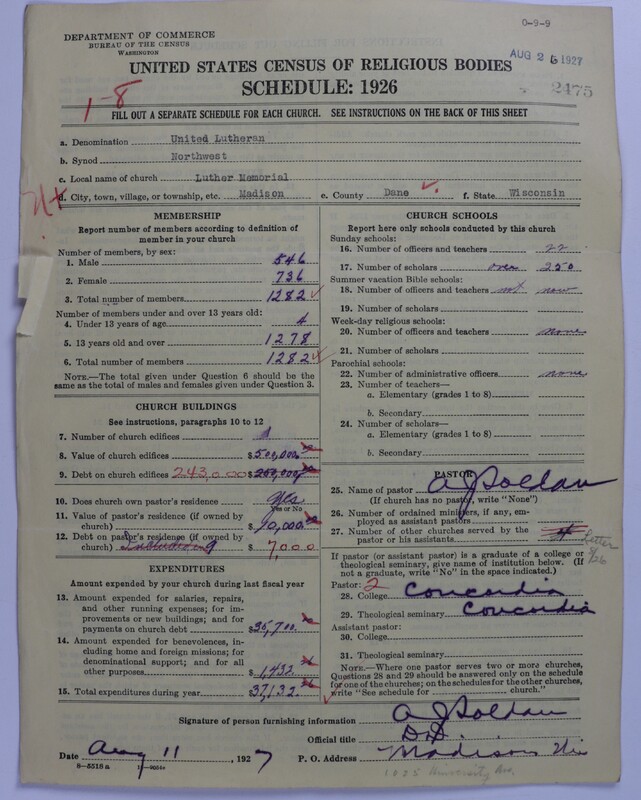 0-9-9
DEPARTMENT OF COMMERCE
BUREAU OF THE CENSUS
WASHINGTON
AUG 26 1927
UNITED STATES CENSUS OF RELIGIOUS BODIES
SCHEDULE: 1926
2475
1-8
FILL OUT A SEPARATE SCHEDULE FOR EACH CHURCH. SEE INSTRUCTIONS ON THE BACK OF THIS SHEET
a. Denomination United Lutheran
b. Synod Northwest
c. Local name of church Luther Memorial
d. City, town, village, or township, etc. Madison e. County Dane f. State Wisconsin
MEMBERSHIP
Report number of members according to definition of
member in your church
Number of members, by sex:
1. Male 546
2. Female 736
3. Total number of members 1282
Number of members under and over 13 years old:
4. Under 13 years of age 4
5. 13 years old and over 1278
6. Total number of members 1282
NOTE.—The total given under Question 6 should be the
same as the total of males and females given under Question 3.
CHURCH BUILDINGS
See instructions, paragraphs 10 to 12
7. Number of church edifices 1
8. Value of church edifices $500,000
9. Debt on church edifices 243,000 $250,000
10. Does church own pastor's residence Yes
Yes or No
11. Value of pastor's residence (if owned by
church) $10,000
12. Debt on pastor's residence (if owned by
church) Including $ 7,000
EXPENDITURES
Amount expended by your church during last fiscal year
13. Amount expended for salaries, repairs,
and other running expenses; for im-
provements or new buildings; and for
payments on church debt $35,700
14. Amount expended for benevolences, in-
cluding home and foreign missions; for
denominational support; and for all
other purposes $1,432
15. Total expenditures during year $37,132
CHURCH SCHOOLS
Report here only schools conducted by this church
Sunday schools:
16. Number of officers and teachers 22
17. Number of scholars over 250
Summer vacation Bible schools:
18. Number of officers and teachers not now
19. Number of scholars
Week-day religious schools:
20. Number of officers and teachers none
21. Number of scholars
Parochial schools:
22. Number of administrative officers none
23. Number of teachers—
a. Elementary (grades 1 to 8)
b. Secondary
24. Number of scholars—
a. Elementary (grades 1 to 8)
b. Secondary
PASTOR
25. Name of pastor A J Soldan
(If church has no pastor, write "None")
26. Number of ordained ministers, if any, em-
ployed as assistant pastors
27. Number of other churches served by the
pastor or his assistants
letter
If pastor (or assistant pastor) is a graduate of a college or
theological seminary, give name of institution below. (If
not a graduate, write "No" in the space indicated.)
Pastor: 2
28. College Concordia
29. Theological seminary Concordia
Assistant pastor:
30. College
31. Theological seminary
NOTE.—Where one pastor serves two or more churches,
Questions 28 and 29 should be answered only on the schedule
for one of the churches; on the schedules for the other churches,
write "See schedule for church."
Signature of person furnishing information A J Soldan
Official title D.D.
Date Aug 11, 1927 P. O. Address Madison Wis
8-5518a
1025 University Ave.